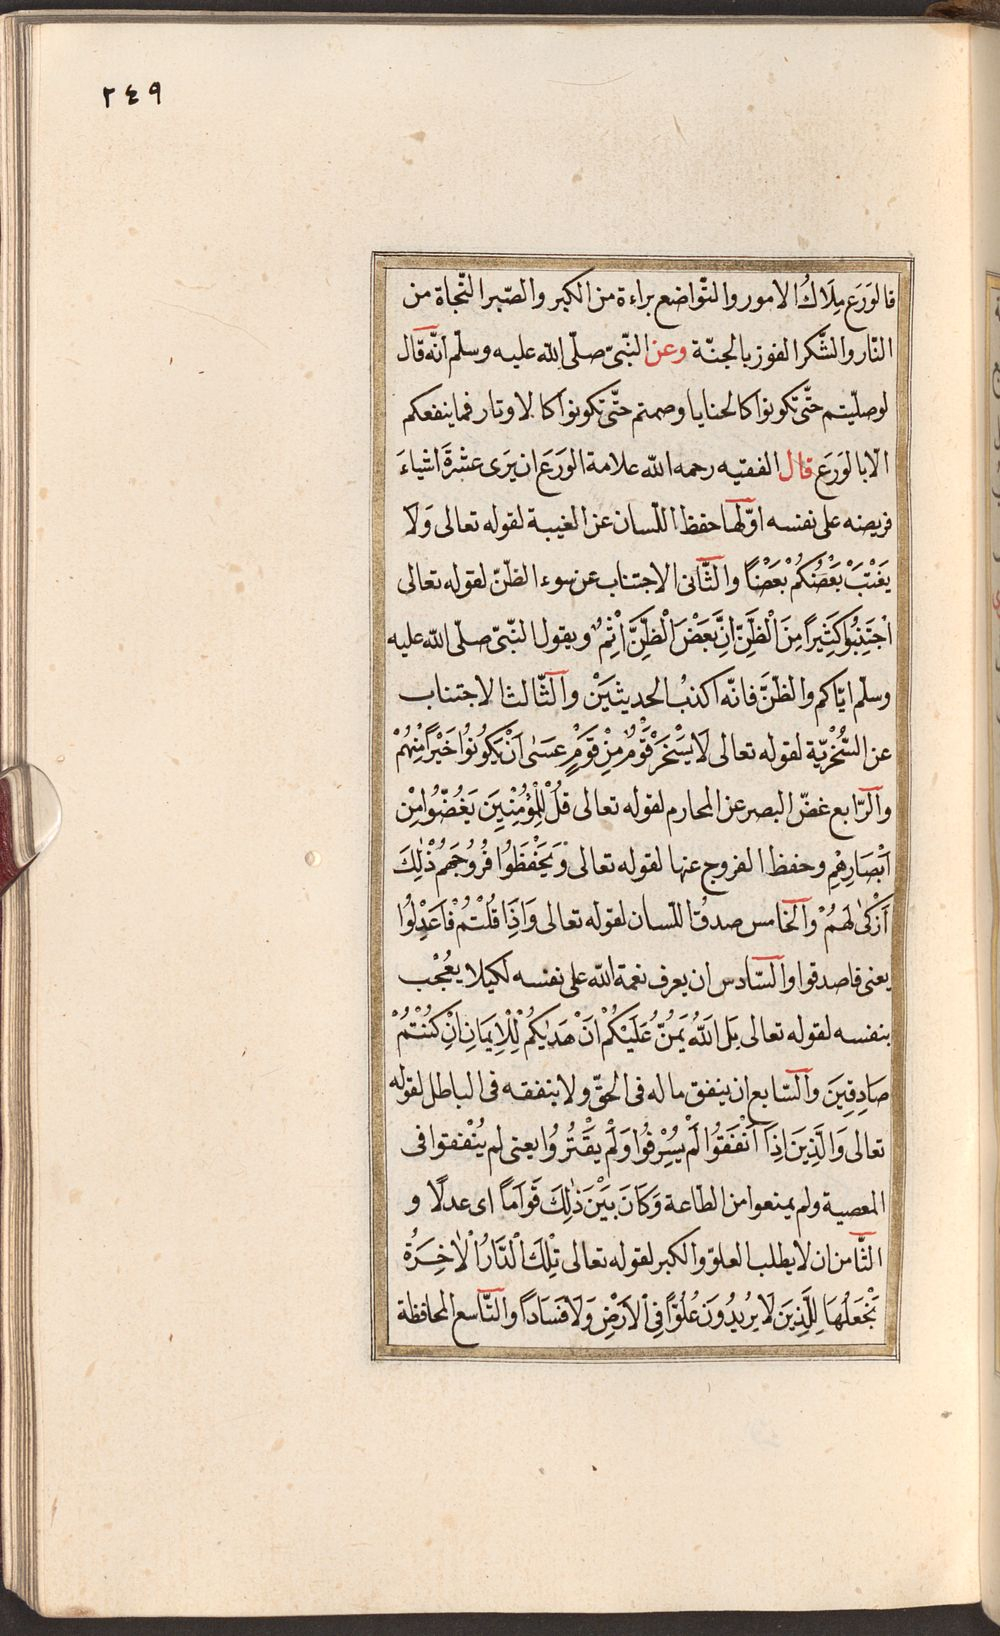 ٢٤٩
فالورع مِلَاكُ الامور والتّواضع براءة من الكبر والصّبر النّجاة من
النّار والشّكر الفوز بالجنّة وعن النّبىّ صلّى الله عليه وسلّم انّه قال
لو صلّيتم حتّى تكونوا كالحنايا وصمتم حتّى تكونوا كالاوتار فما ينفعكم
الا بالورَع قال الفقيه رحمه الله علامة الورَعَ ان يَرى عشرَةَ اشياءَ
فريضه على نفسه اوّلها حفظ اللّسان عن الغيبة لقوله تعالى وَلَا
يَغْتَبْ بَعْضُكُمْ بَعْضًا والثّانى الاجتناب عن سوء الظنّ لقوله تعالى
اجْتَنِبُوا كَثِيرًا مِنَ الْظَنِّ اِنَّ بَعْضَ الْظَنِّ اِثْمٌ ويقول النّبىّ صلّى الله عليه
وسلّم ايّاكم والظنَّ فانّه اكذبُ الحديثَيْن والثّالث الاجتناب
عن السُّخْرِيّة لقوله تعالى لَا يَسْخَرْ قَوْمٌ مِنْ قَوْمٍ عَسَى اَنْ يَكُونُوا خَيْرًا مِنْهُمْ
والرّابع غضّ البصر عن المحارم لقوله تعالى قُلْ لِلْمُؤْمِنِينَ يَغُضُّوا مِنْ
اَبْصَارِهِمْ وحفظ الفروج عنها لقوله تعالى وَيَحْفَظُوا فُرُوجَهُمْ ذٰلِكَ
اَزْكٰى لَهُمْ والخامس صدقُ اللّسان لقوله تعالى وَاِذَا قُلْتُمْ فَاعْدِلُوا
يعنى فاصدقوا والسّادس ان يعرف نعمة الله على نفسه لكيلا يعُجْب
بنفسه لقوله تعالى بَلِ اللهُ يَمُنُّ عَلَيْكُمْ اَنْ هَدٰيكُمْ لِلْاِيمَانِ اِنْ كُنْتُمْ
صَادِقِينَ والسّابع ان ينفق ماله فى الحقّ ولا ينفقه فى الباطل لقوله
تعالى وَالَّذِينَ اِذَا اَنْفَقُوا لَمْ يُسْرِفُوا وَلَمْ يَقْتُرُوا يعنى لم يُنْفقوا فى
المعصية ولم يمنعوا من الطّاعة وَكَانَ بَيْنَ ذٰلِكَ قَوَامًا اى عدلًا و
الثّامن ان لا يطلب العلوّ والكبر لقوله تعالى تِلْكَ الْدَّارُ الْاٰخِرَةُ
نَجْعَلُهَا لِلَّذِينَ لَا يُرِيدُونَ عُلُوًّا فِى الْاَرْضِ وَلَا فَسَادًا والتّاسع المحافظة